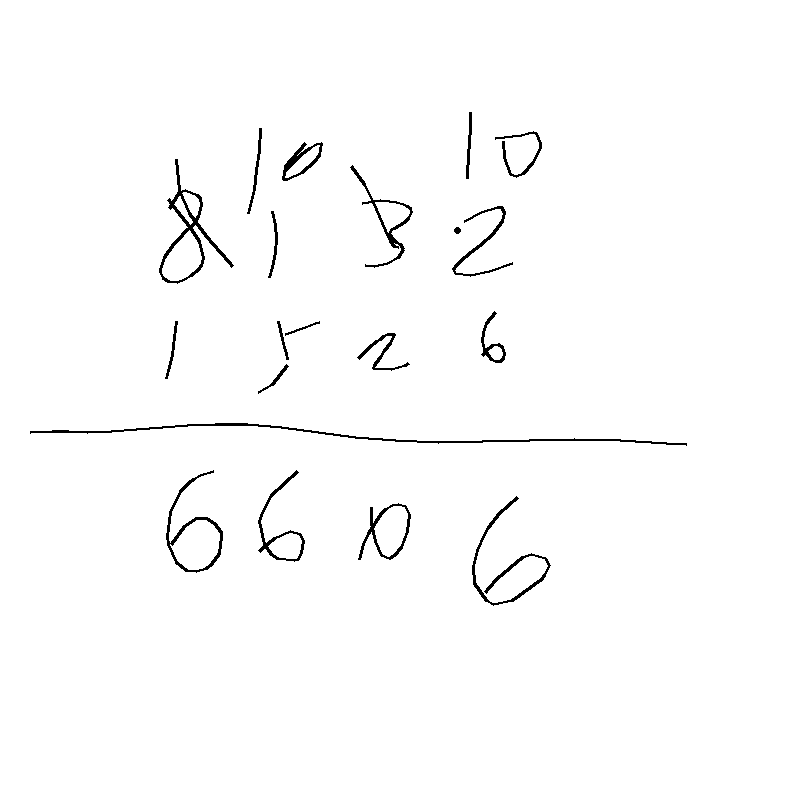 10 10
8 1 3 2
1 5 2 6
6 6 0 6